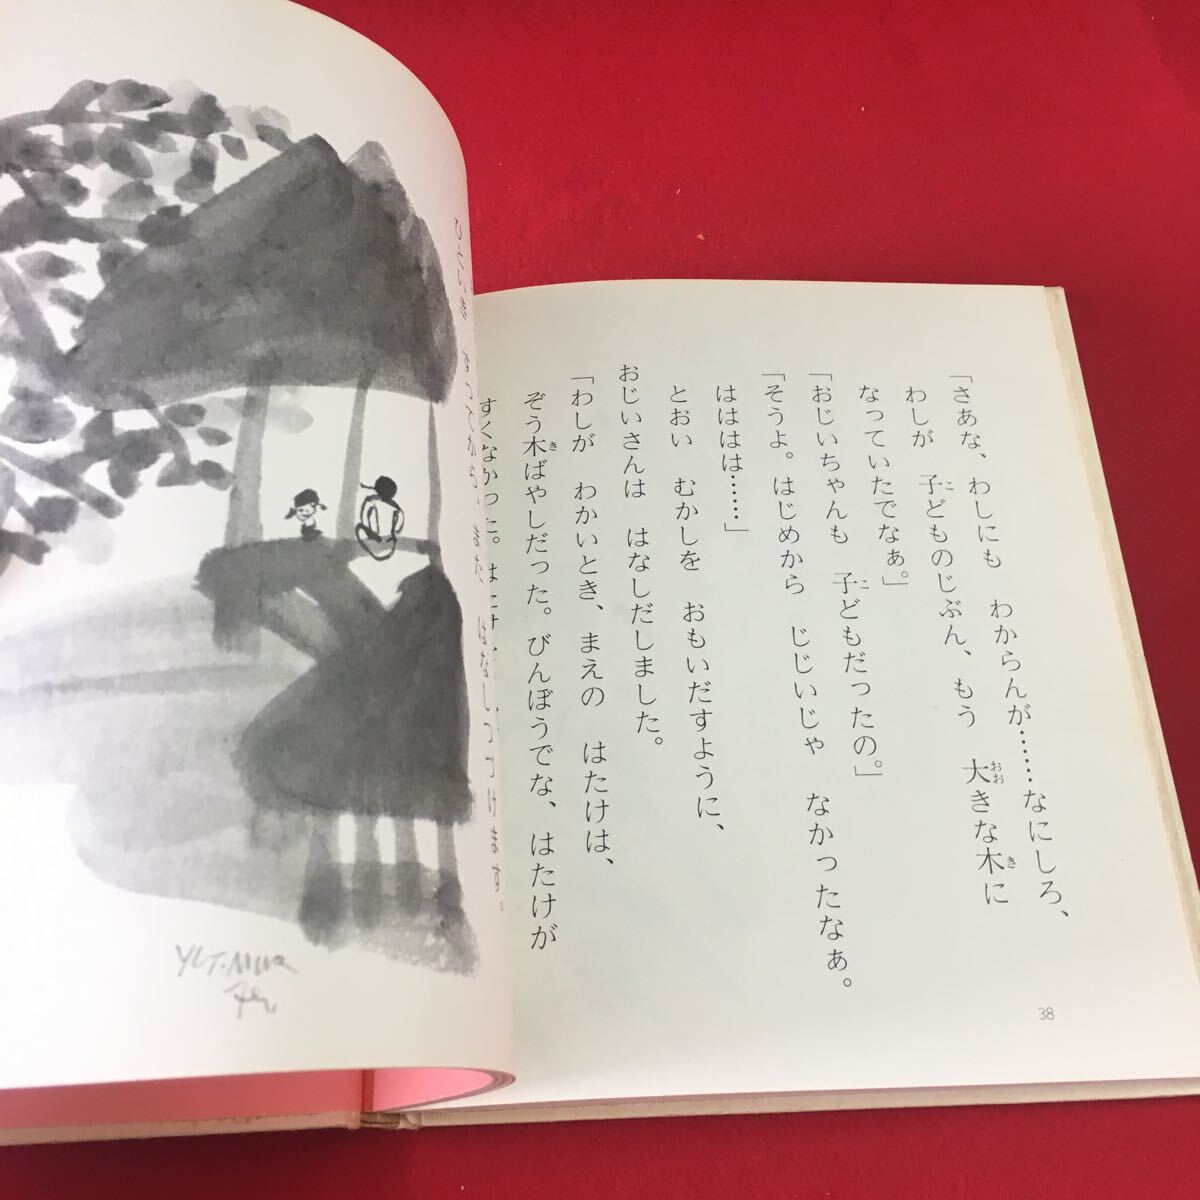 「さあな、わしにも　わからんが……なにしろ、
わしが　子どものじぶん、もう　大きな木に
なっていたでなぁ。」
「おじいちゃんも　子どもだったの。」
「そうよ。はじめから　じじいじゃ　なかったなぁ。
はははは……」
とおい　むかしを　おもいだすように、
おじいさんは　はなしだしました。
「わしが　わかいとき、まえの　はたけは、
ぞう木ばやしだった。びんぼうでな、はたけが
すくなかった。
38